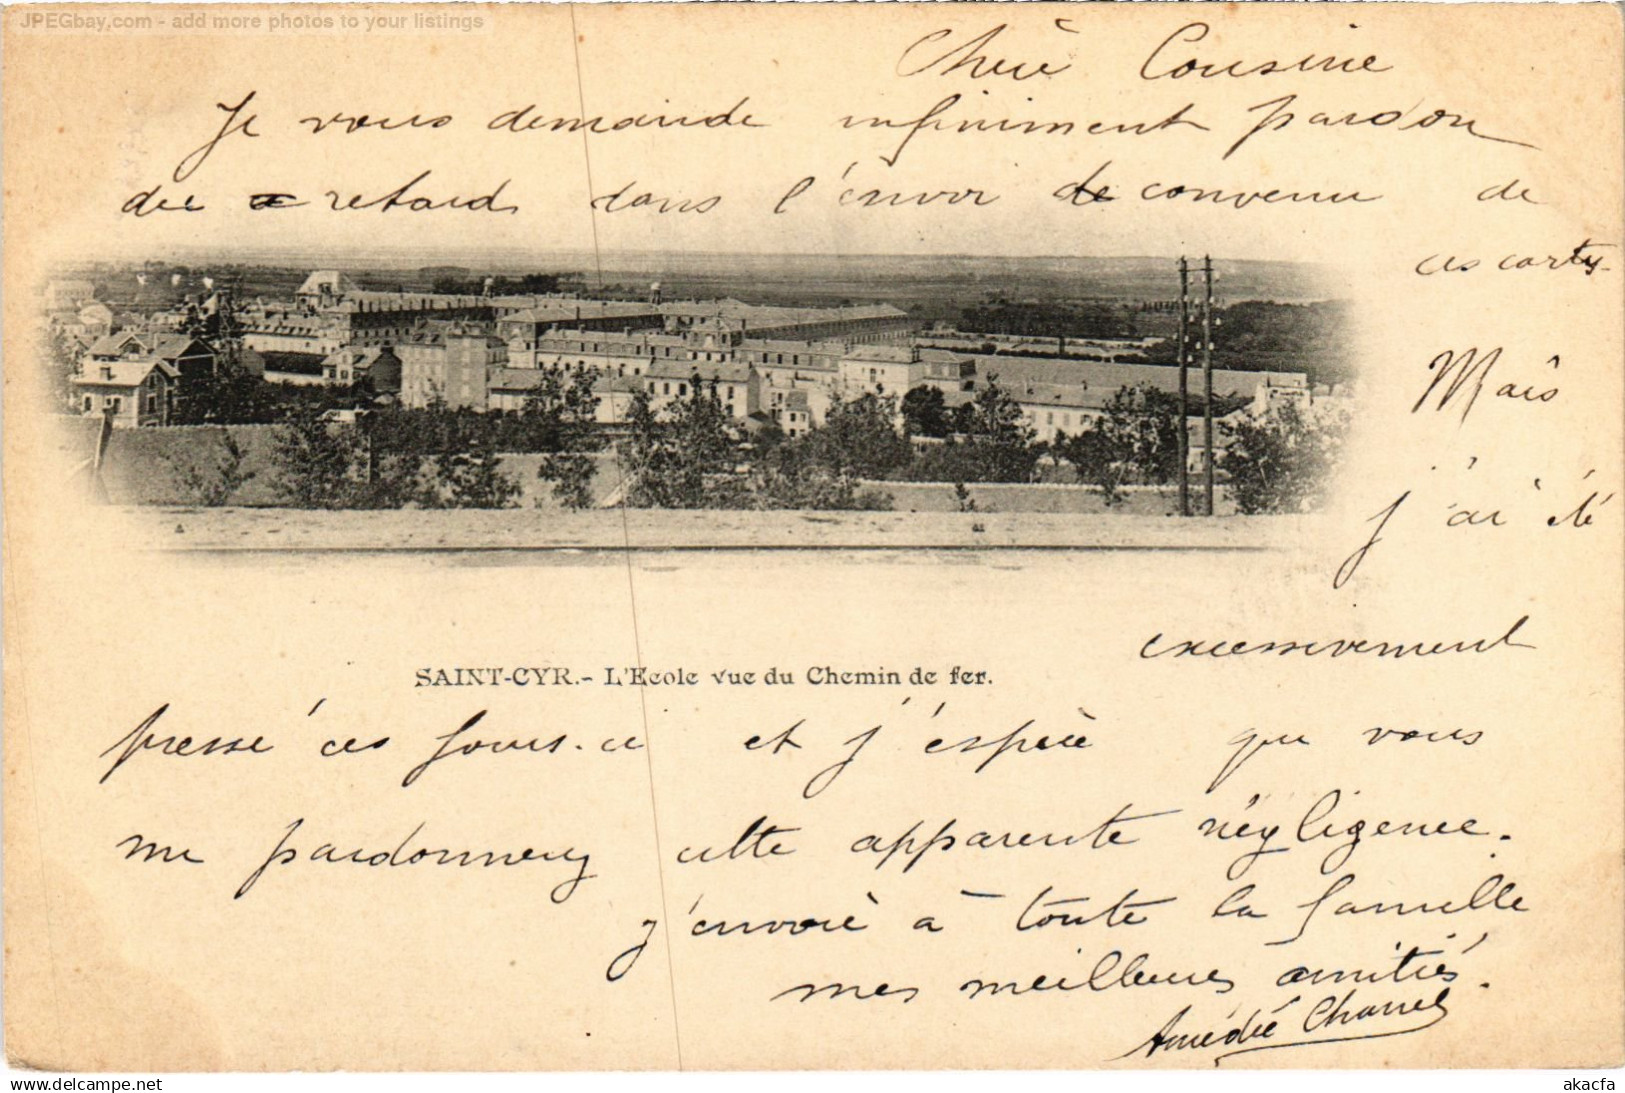 JPEGbay.com - add more photos to your listings
Chère Cousine
Je vous demande infiniment pardon
du retard dans l'envoi convenu de
ces cartes.
Mais
j'ai été
excessivement
SAINT-CYR.- L'Ecole vue du Chemin de fer.
pressé ces jours-ci et j'espère que vous
me pardonnerez cette apparente négligence.
J'envoie à toute la famille
mes meilleures amitiés.
Amédée
www.delcampe.net
akacfa